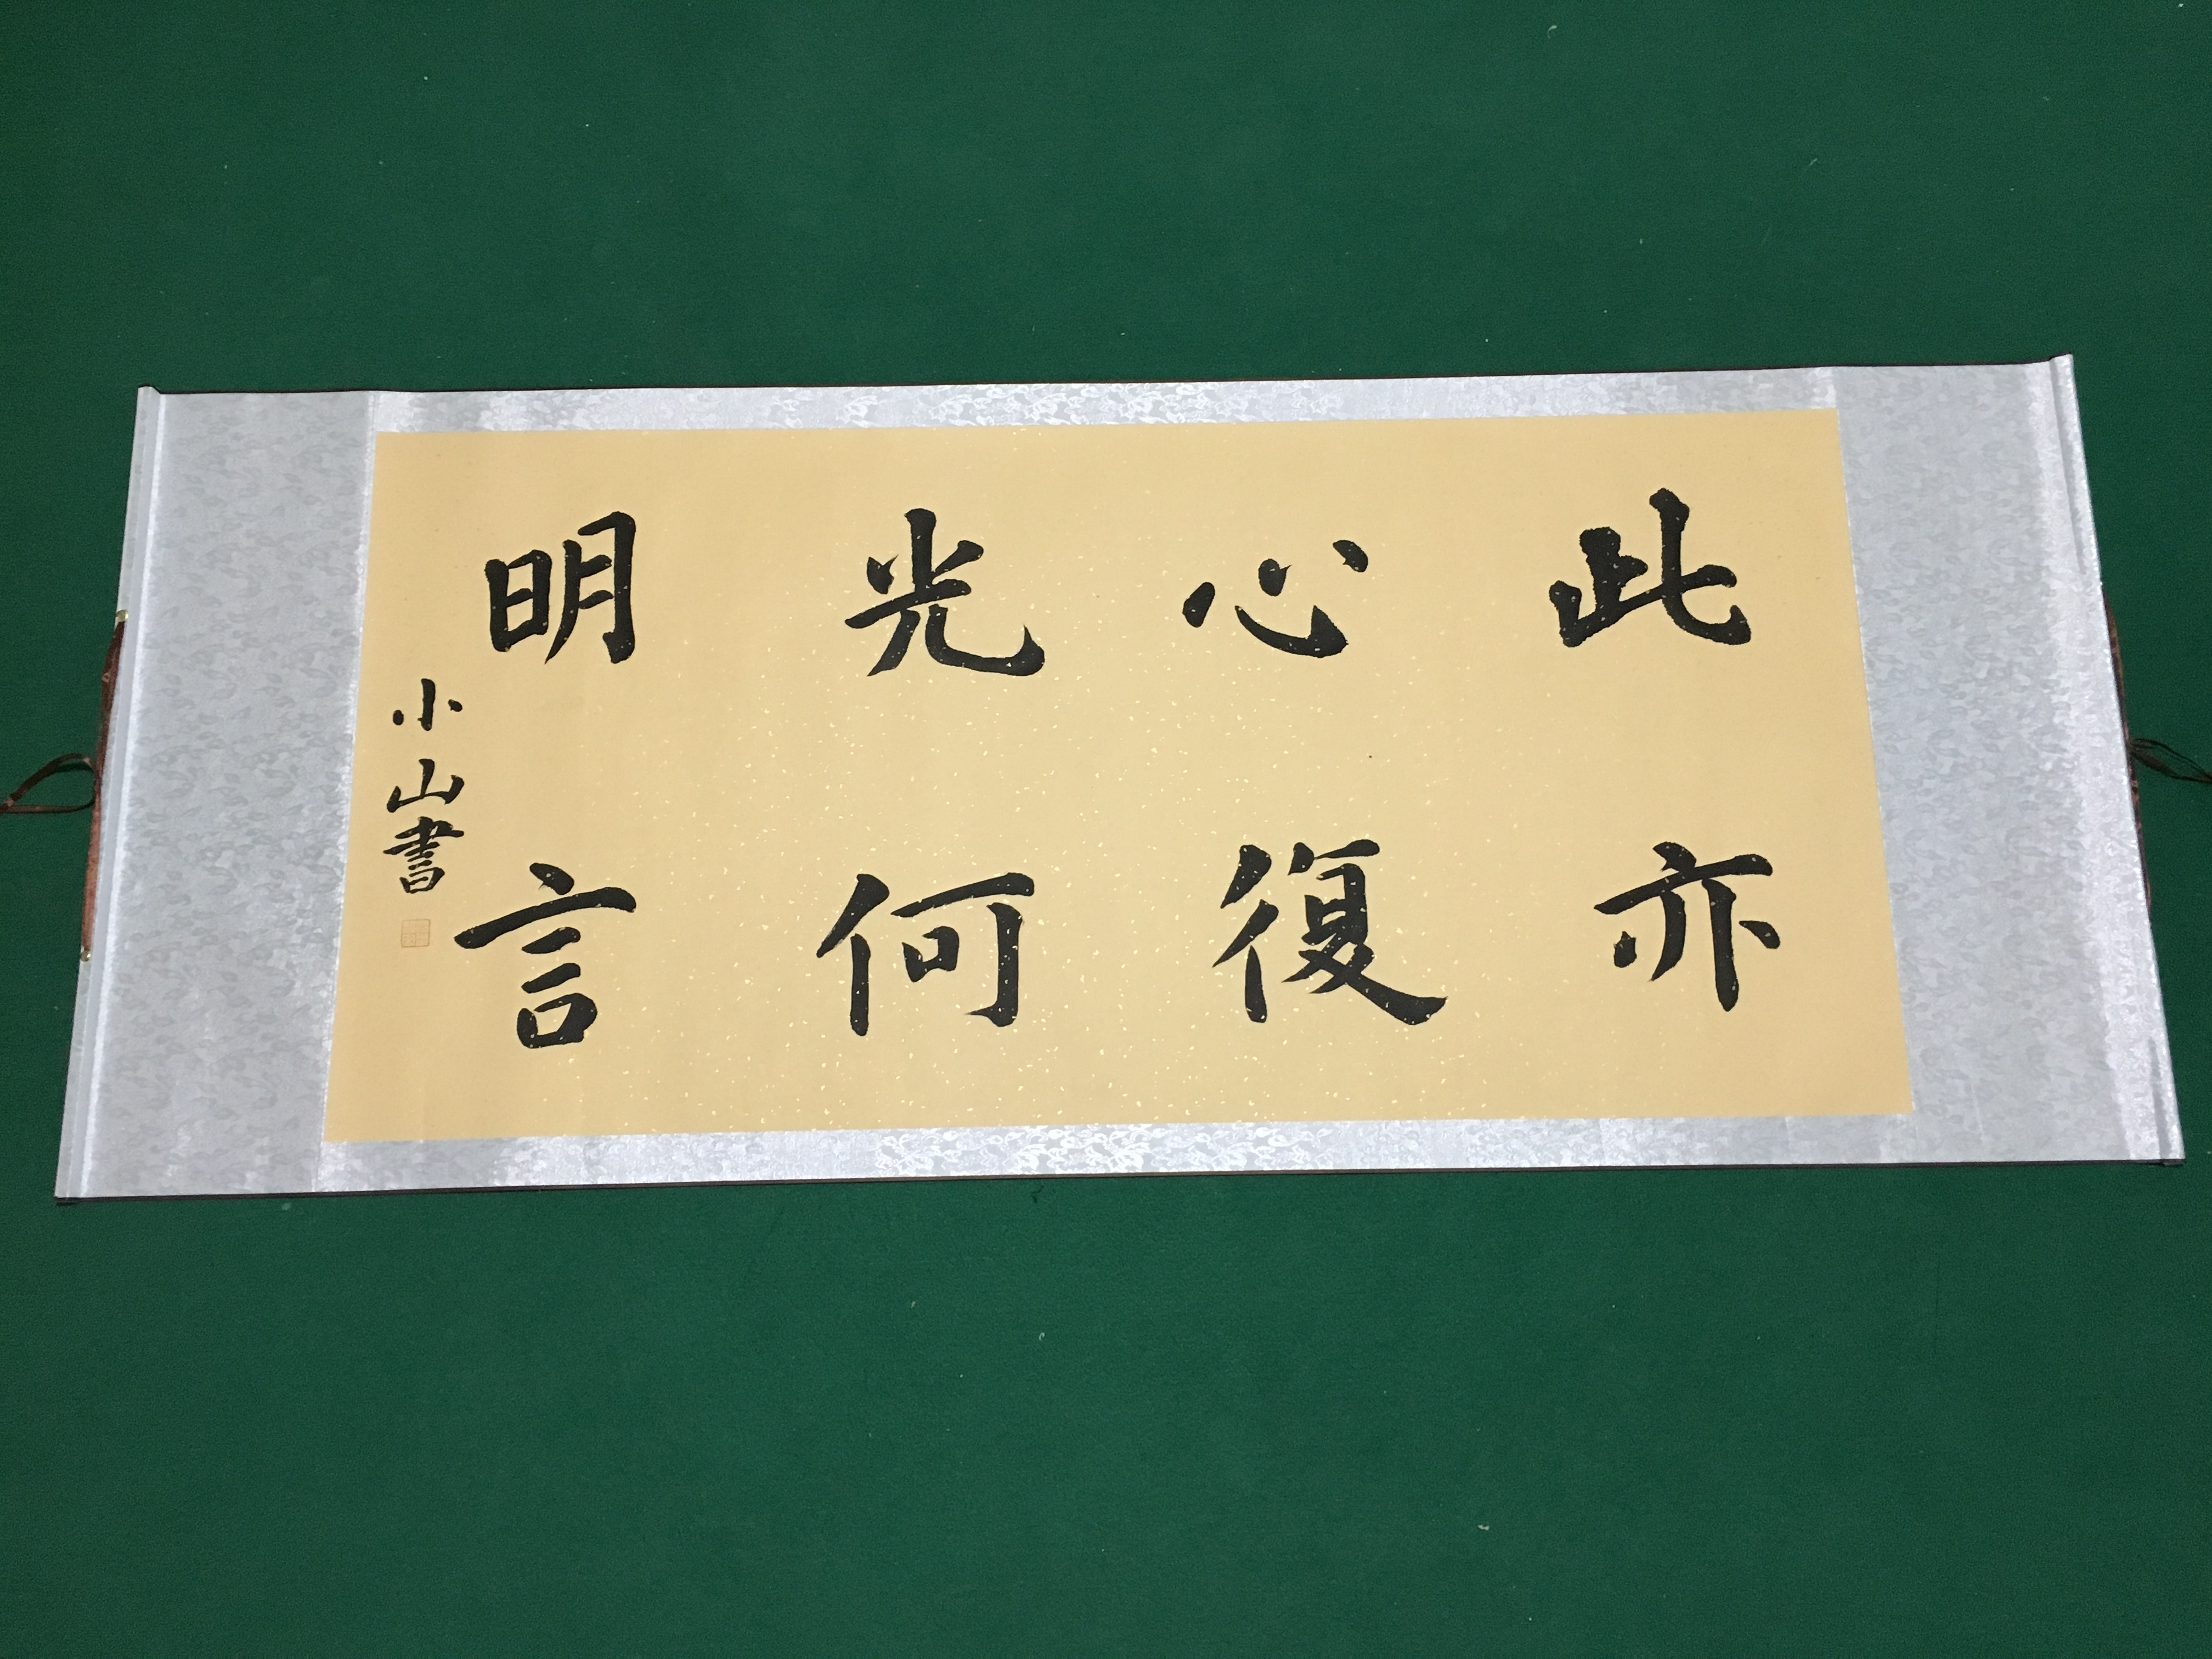 此心光明
亦復何言
小山書